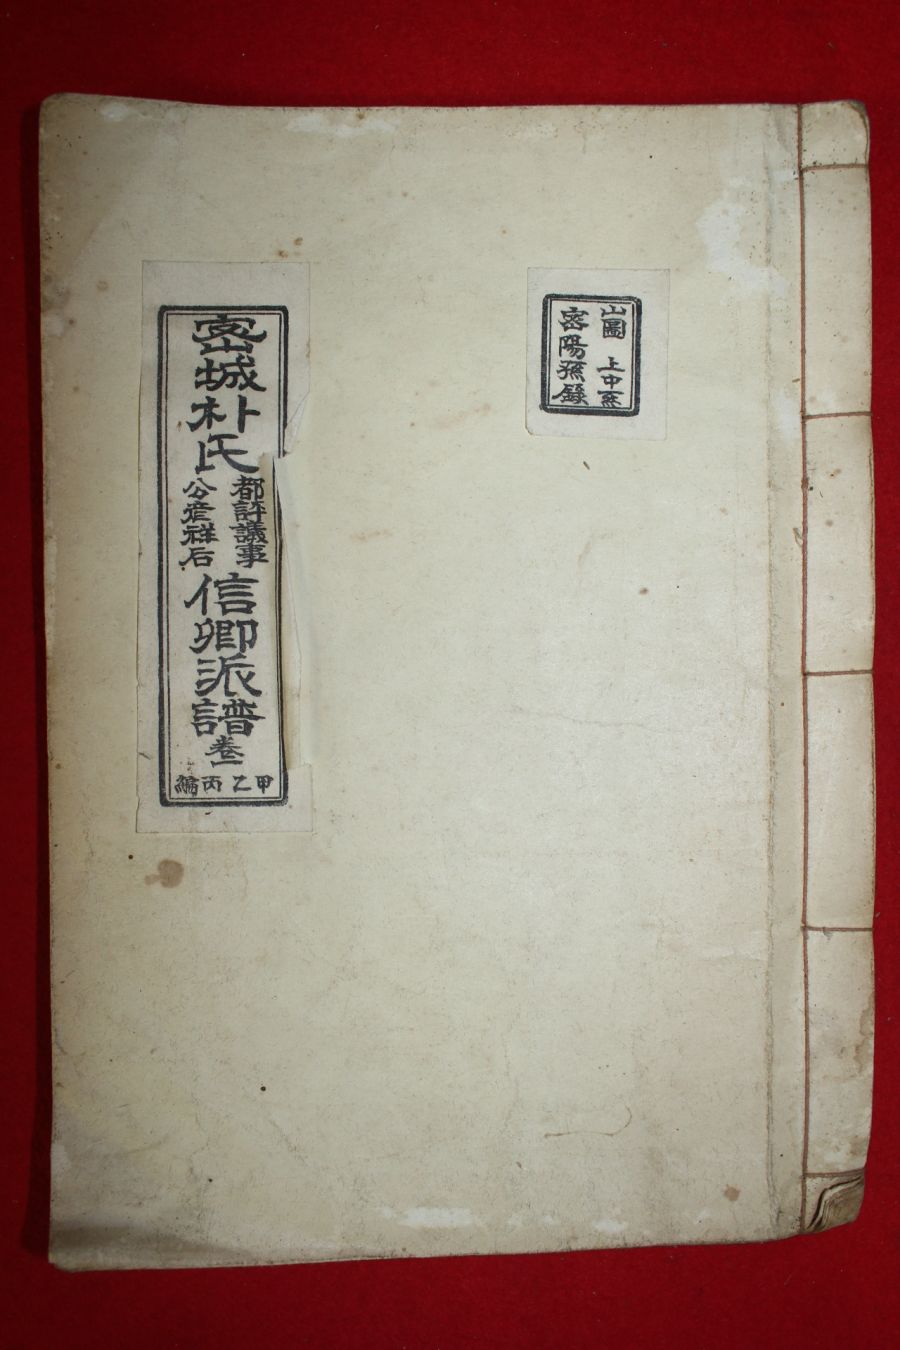 山圖 上中系
密陽孫錄
密城朴氏
都評議事
公彦祥石
信卿派譜
卷一
甲乙丙編